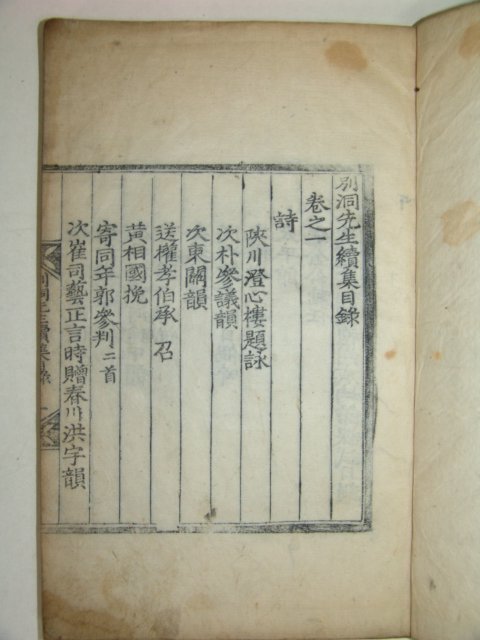 別洞先生續集目錄
卷之一
詩
陜川澄心樓題詠
次朴參議韻
次東關韻
送權孝伯承 召
黃相國挽
寄同年郭參判 二首
次崔司藝正言時贈春川洪字韻
別洞先生續集目錄 一